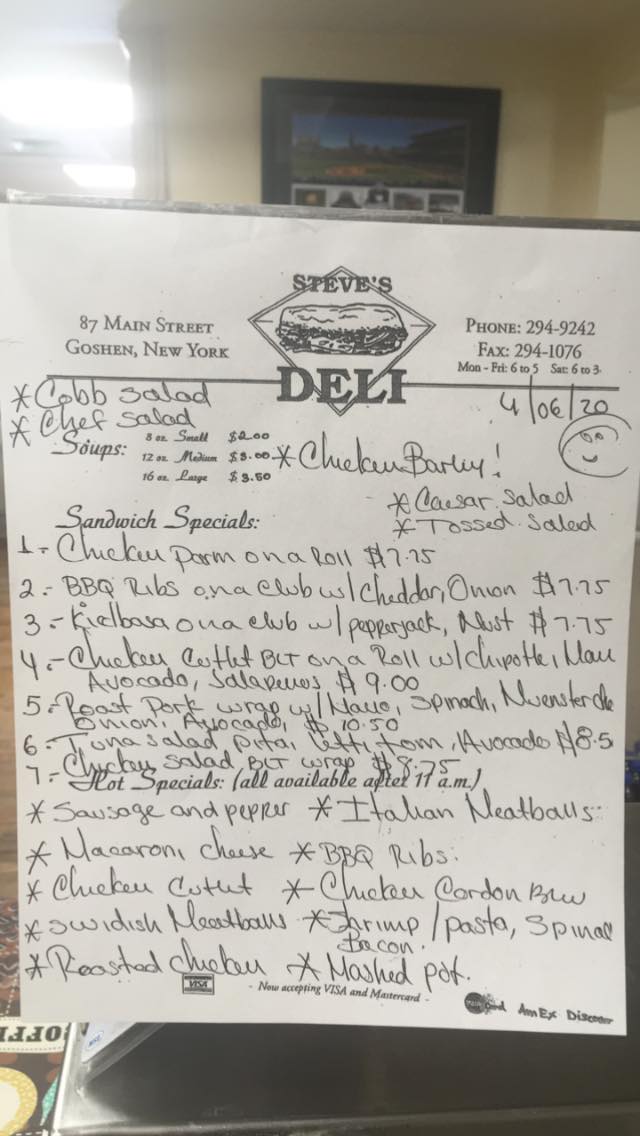 STEVE'S
DELI
87 MAIN STREET
GOSHEN, NEW YORK
PHONE: 294-9242
FAX: 294-1076
Mon - Fri: 6 to 5 Sat: 6 to 3
4/06/20
* Cobb Salad
* Chef Salad
Soups: 8 oz. Small $2.00
12 oz. Medium $3.00
16 oz. Large $3.50
* Chicken Barley!
* Caesar Salad
* Tossed Salad
Sandwich Specials:
1- Chicken Parm on a Roll $7.75
2- BBQ Ribs on a club w/cheddar, Onion $7.75
3- Kielbasa on a club w/pepperjack, Must $7.75
4- Chicken Cutlet BLT on a Roll w/Chipotle, Mau
Avocado, Jalapenos $9.00
5- Roast Pork wrap w/Mayo, Spinach, Muenster che
Onion, Avocado, $10.50
6- Tuna Salad pita, lett, tom, Avocado $8.5
7- Chicken Salad BLT wrap $8.75
Hot Specials: (all available after 11 a.m.)
* Sausage and pepper * Italian Meatballs
* Macaroni cheese * BBQ Ribs.
* Chicken Cutlet * Chicken Cordon Blw
* Swidish Meatballs * Shrimp/pasta, Spinac
Bacon.
* Roasted chicken * Mashed pot.
VISA - Now accepting VISA and Mastercard -
AmEx Discover